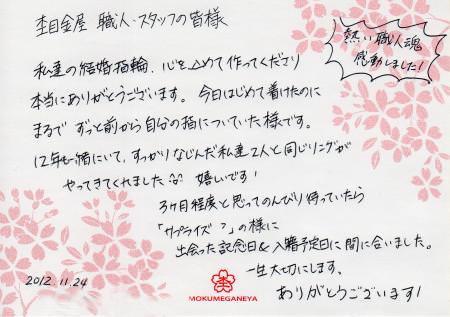 杢目金屋 職人・スタッフの皆様
熱い職人魂
感動しました！
私達の結婚指輪、心を込めて作ってくださり
本当にありがとうございます。今日はじめて着けたのに
まるで ずっと前から自分の指についていた様です。
12年も一緒にいて、すっかりなじんだ私達2人と同じリングが
やってきてくれました 嬉しいです！
3ヶ月程度と思ってのんびり待っていたら
「サプライズ？」の様に
出会った記念日＆入籍予定日に間に合いました。
一生大切にします。
ありがとうございます！
2012.11.24
MOKUMEGANEYA